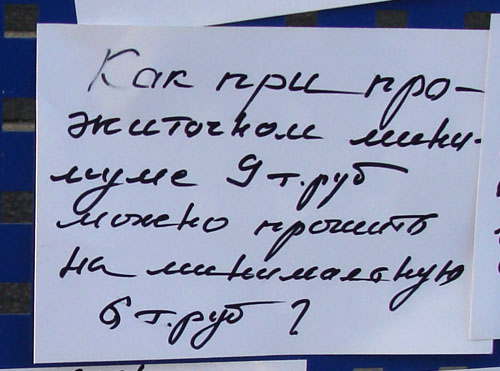 Как при про-
житочном мини-
муме 9 т.руб
можно прожить
на минималную
6 т.руб ?